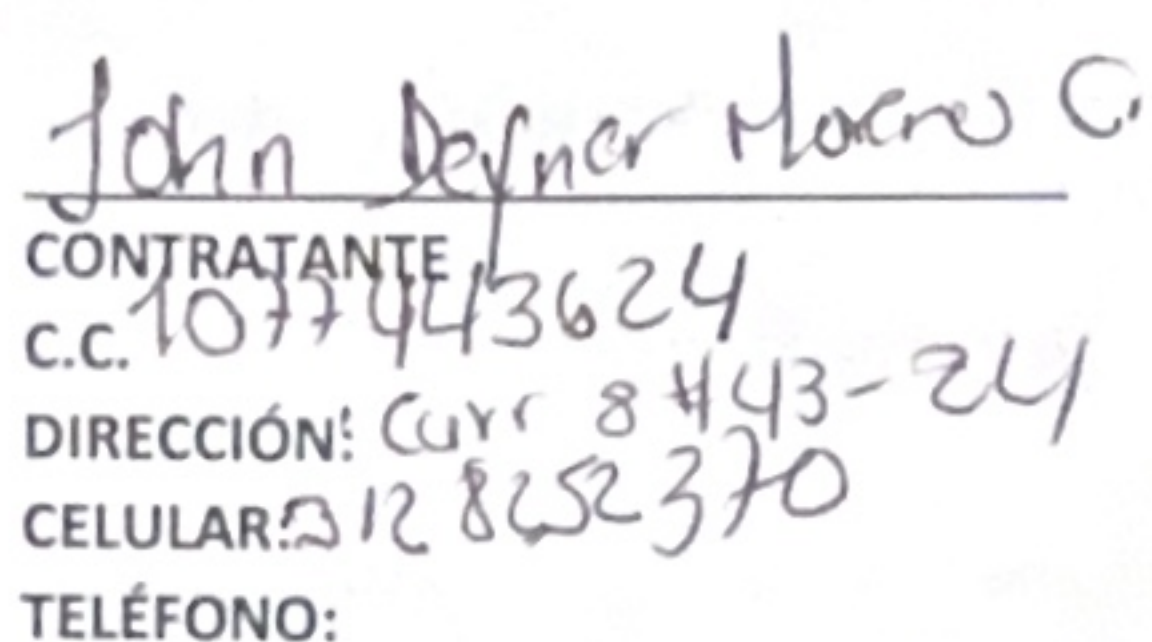 John Deyner Moreno C.
CONTRATANTE
C.C. 1077443624
DIRECCIÓN: Carr 8 #43-24
CELULAR: 312 8252370
TELÉFONO: